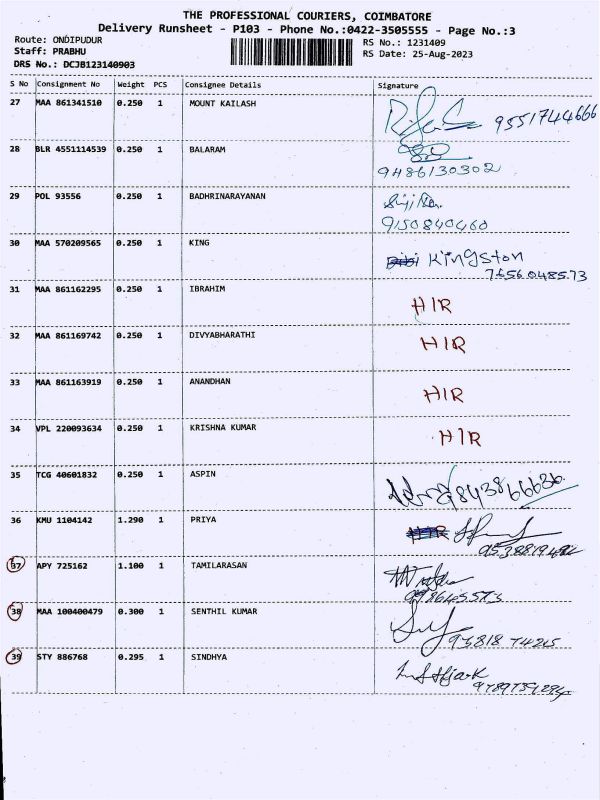 THE PROFESSIONAL COURIERS, COIMBATORE
Delivery Runsheet - P103 - Phone No.:0422-3505555 - Page No.:3
Route: ONDIPUDUR RS No.: 1231409
Staff: PRABHU RS Date: 25-Aug-2023
DRS No.: DCJB123140903
S No Consignment No Weight PCS Consignee Details Signature
27 MAA 861341510 0.250 1 MOUNT KAILASH 9551744666
28 BLR 4551114539 0.250 1 BALARAM
9486130302
29 POL 93556 0.250 1 BADHRINARAYANAN
9150840460
30 MAA 570209565 0.250 1 KING Kingston
7656048573
31 MAA 861162295 0.250 1 IBRAHIM HIR
32 MAA 861169742 0.250 1 DIVYABHARATHI HIR
33 MAA 861163919 0.250 1 ANANDHAN HIR
34 VPL 220093634 0.250 1 KRISHNA KUMAR HIR
35 TCG 40601832 0.250 1 ASPIN
36 KMU 1104142 1.290 1 PRIYA
37 APY 725162 1.100 1 TAMILARASAN
38 MAA 100400479 0.300 1 SENTHIL KUMAR
39 STY 886768 0.295 1 SINDHYA